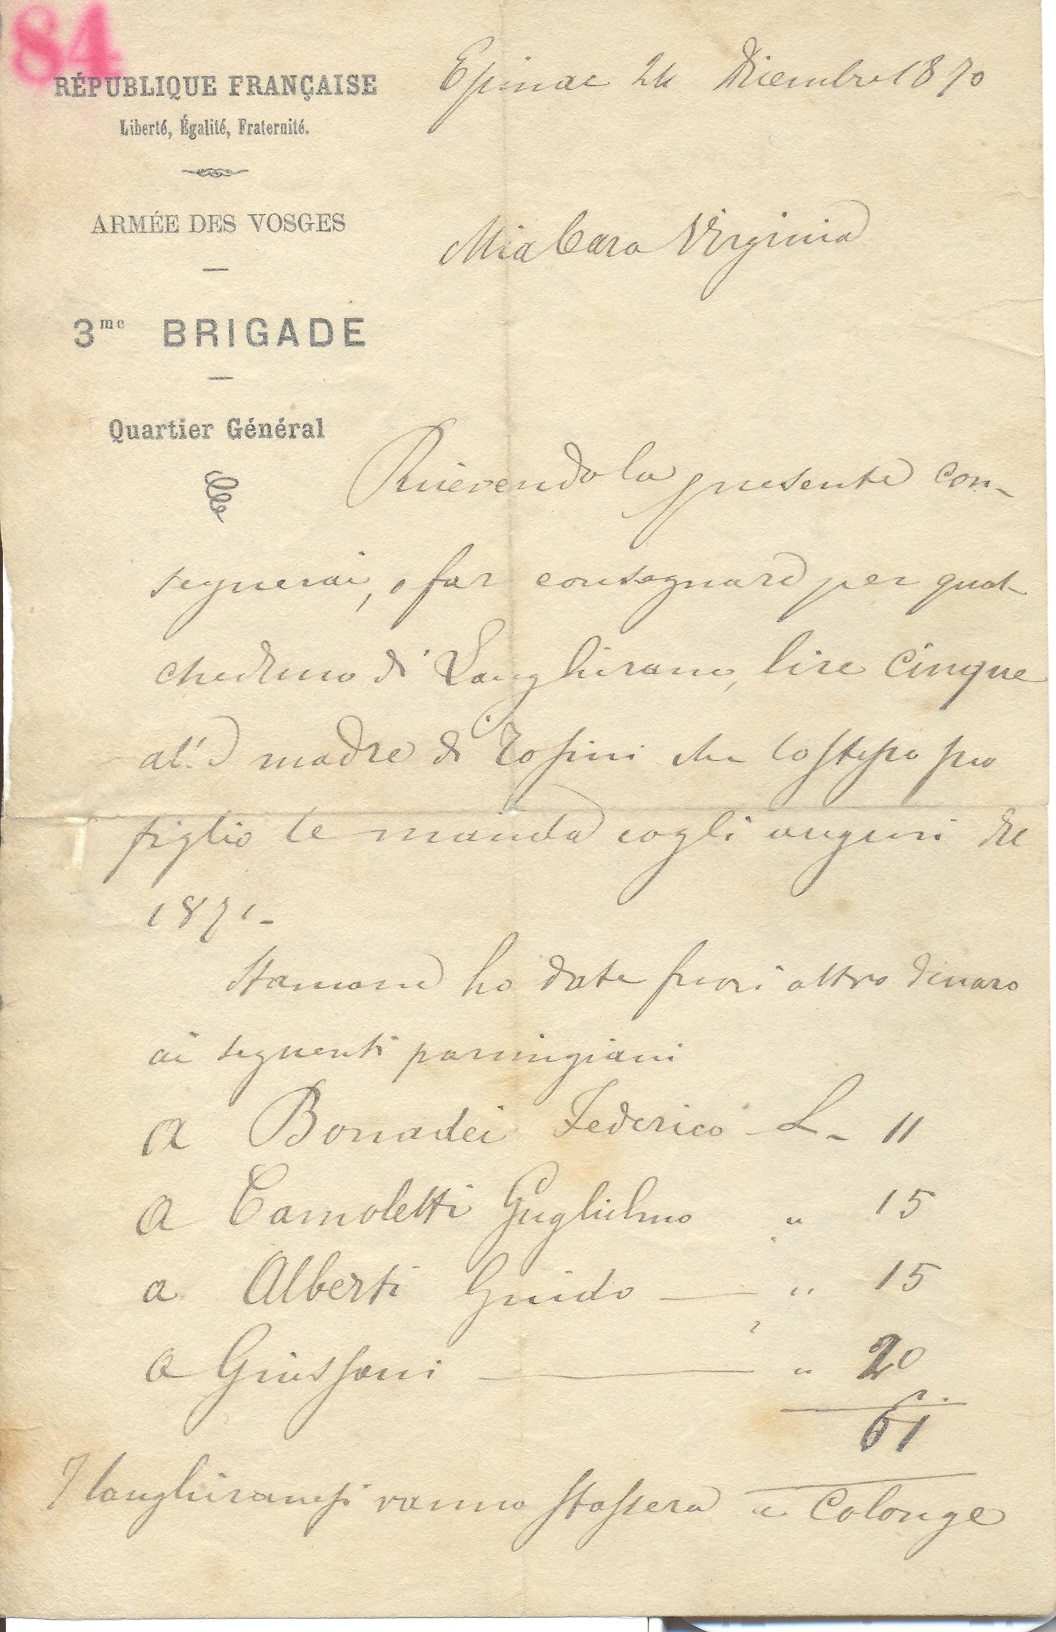 84
RÉPUBLIQUE FRANÇAISE
Liberté, Égalité, Fraternité.
ARMÉE DES VOSGES
3me BRIGADE
Quartier Général
Epinac 24 Dicembre 1870
Mia Cara Virginia
Ricevendo la presente con-
segnerai, o far consegnare per qual-
cheduno di Langhirano, lire cinque
alla madre di Tosini che lo stesso suo
figlio le manda cogli auguri del
1871-
Stamane ho date fuori altro denaro
ai seguenti parmigiani
a Bonadei Federico L- 11
a Camoletti Guglielmo " 15
a Alberti Guido — " 15
a Giussani — " 20
61
I langhiranesi vanno stassera a Colonge